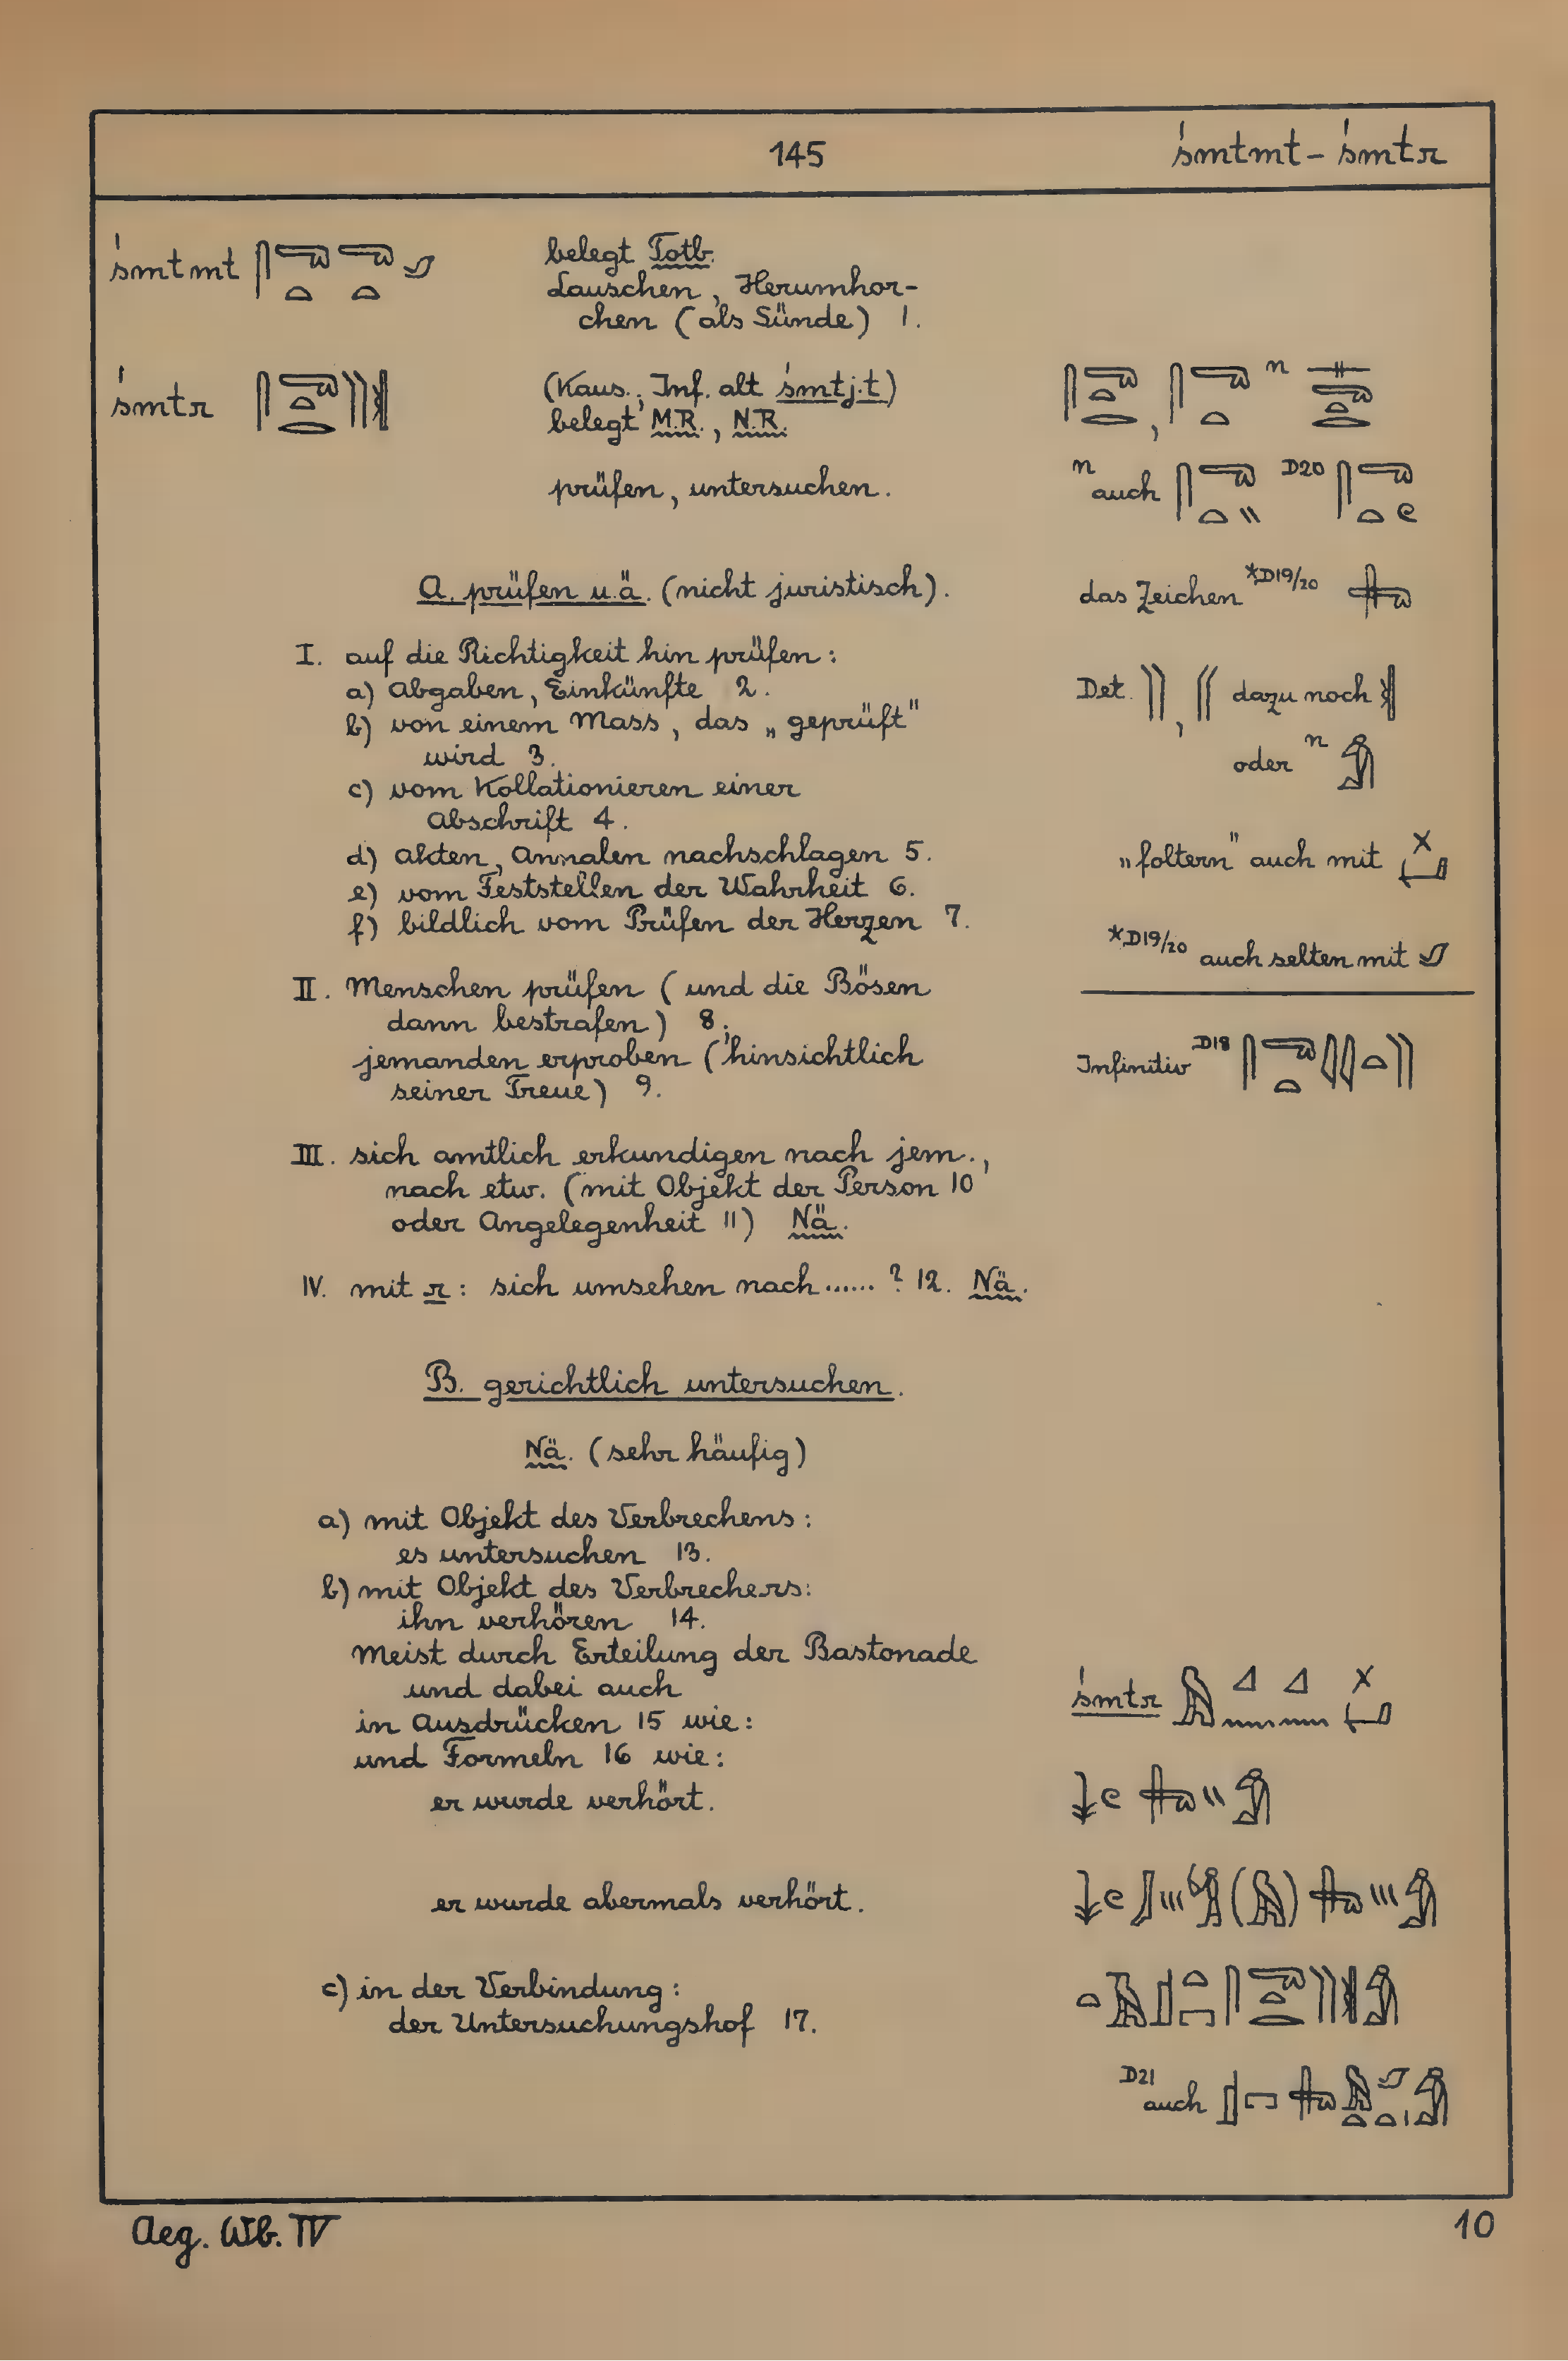 145 śmtmt - śmtr
śmtmt belegt Totb.
Lauschen, Herumhor-
chen (als Sünde) 1.
śmtr (Kaus.; Inf. alt śmtj.t)
belegt M.R., N.R.
prüfen, untersuchen.
n auch D20
A. prüfen u.ä. (nicht juristisch).
das Zeichen *D19/20
I. auf die Richtigkeit hin prüfen:
a) Abgaben, Einkünfte 2.
Det. , dazu noch
b) von einem Mass, das „geprüft"
wird 3.
oder n
c) vom Kollationieren einer
Abschrift 4.
d) Akten, Annalen nachschlagen 5.
„foltern" auch mit
e) vom Feststellen der Wahrheit 6.
f) bildlich vom Prüfen der Herzen 7.
*D19/20 auch selten mit
II. Menschen prüfen (und die Bösen
dann bestrafen) 8;
jemanden erproben (hinsichtlich
seiner Treue) 9.
Infinitiv D18
III. sich amtlich erkundigen nach jem.,
nach etw. (mit Objekt der Person 10
oder Angelegenheit 11) Nä.
IV. mit r: sich umsehen nach ...... ? 12. Nä.
B. gerichtlich untersuchen.
Nä. (sehr häufig)
a) mit Objekt des Verbrechens:
es untersuchen 13.
b) mit Objekt des Verbrechers:
ihn verhören 14.
Meist durch Erteilung der Bastonade
und dabei auch
in Ausdrücken 15 wie: śmtr
und Formeln 16 wie:
er wurde verhört.
er wurde abermals verhört.
c) in der Verbindung:
der Untersuchungshof 17.
D21 auch
Aeg. Wb. IV 10